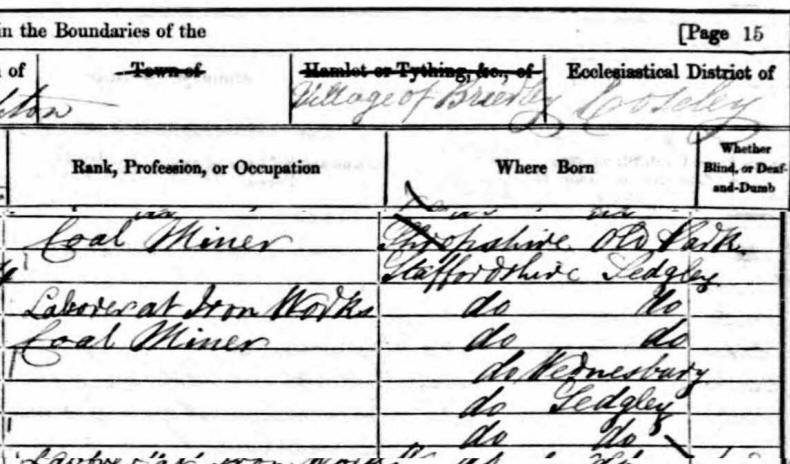 in the Boundaries of the [Page 15
of Town of Hamlet or Tything, &c., of Ecclesiastical District of
Village of Coseley
Rank, Profession, or Occupation Where Born Whether Blind, or Deaf-and-Dumb
Coal Miner Shropshire Old Park
Staffordshire Sedgley
Laborer at Iron Works do do
Coal Miner do do
do Wednesbury
do Sedgley
do do